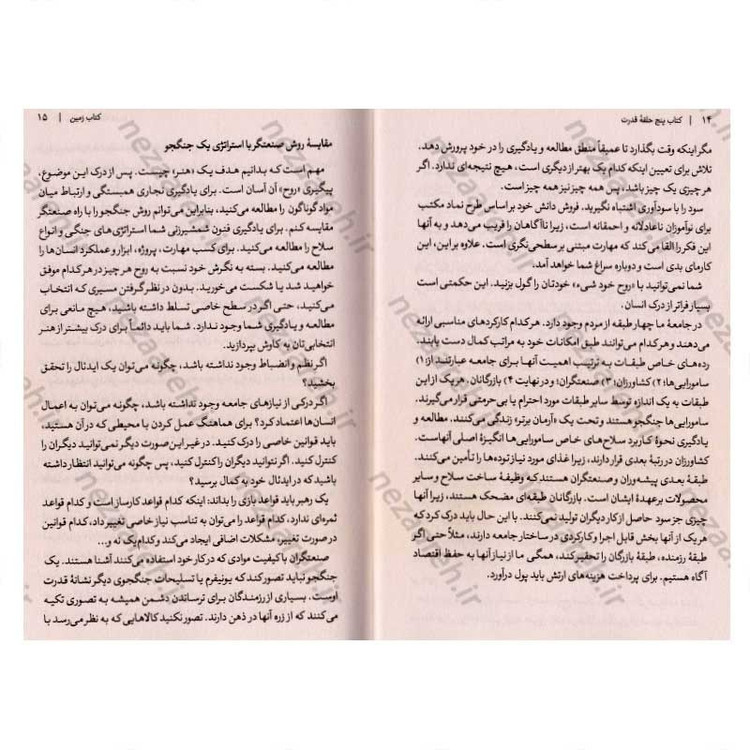 ۱۴ | کتاب پنج حلقهٔ قدرت
مگر اینکه وقت بگذارد تا عمیقاً منطق مطالعه و یادگیری را در خود پرورش دهد.
تلاش برای تعیین اینکه کدام یک بهتر از دیگری است، هیچ نتیجه‌ای ندارد. اگر
هر چیزی یک چیز باشد، پس همه چیز نیز همه چیز است.
سود را با سودآوری اشتباه نگیرید. فروش دانش خود بر اساس طرح نماد مکتب
برای نوآموزان ناعادلانه و احمقانه است، زیرا ناآگاهان را فریب می‌دهد و به آنها
این فکر را القا می‌کند که مهارت مبتنی بر سطحی‌نگری است. علاوه بر این، این
کارمای بدی است و دوباره سراغ شما خواهد آمد.
شما نمی‌توانید با «روح خود شیء» خودتان را گول بزنید. این حکمتی است
بسیار فراتر از درک انسان.
در جامعهٔ ما چهار طبقه از مردم وجود دارد. هر کدام کارکردهای مناسبی ارائه
می‌دهند و هر کدام می‌توانند طبق امکانات خود به مراتب کمال دست یابند.
رده‌های خاص طبقات به ترتیب اهمیت آنها برای جامعه عبارتند از: ۱)
سامورایی‌ها؛ ۲) کشاورزان؛ ۳) صنعتگران؛ و در نهایت ۴) بازرگانان. هر یک از این
طبقات به یک اندازه توسط سایر طبقات مورد احترام یا بی‌حرمتی قرار می‌گیرند.
سامورایی‌ها جنگجو هستند و تحت یک «آرمان برتر» زندگی می‌کنند. مطالعه و
یادگیری نحوهٔ کاربرد سلاح‌های خاص سامورایی‌ها انگیزهٔ اصلی آنهاست.
کشاورزان در رتبهٔ بعدی قرار دارند، زیرا غذای مورد نیاز توده‌ها را تأمین می‌کنند.
طبقهٔ بعدی پیشه‌وران و صنعتگران هستند که وظیفهٔ ساخت سلاح و سایر
محصولات بر عهدهٔ ایشان است. بازرگانان طبقه‌ای مضحک هستند، زیرا آنها
چیزی جز سود حاصل از کار دیگران تولید نمی‌کنند. با این حال باید درک کرد که
هر یک از آنها بخش قابل اجرا و کارکردی در ساختار جامعه دارند، مثلاً حتی اگر
طبقهٔ رزمنده، طبقهٔ بازرگان را تحقیر کند، همگی ما از نیاز آنها به حفظ اقتصاد
آگاه هستیم. برای پرداخت هزینه‌های ارتش باید پول درآورد.
کتاب زمین | ۱۵
مقایسهٔ روش صنعتگر با استراتژی یک جنگجو
مهم است که بدانیم هدف یک «هنر» چیست. پس از درک این موضوع،
پیگیری «روح» آن آسان است. برای یادگیری نجاری همبستگی و ارتباط میان
مواد گوناگون را مطالعه می‌کنید، بنابراین می‌توانم روش جنگجو را با راه صنعتگر
مقایسه کنم. برای یادگیری فنون شمشیرزنی شما استراتژی‌های جنگی و انواع
سلاح را مطالعه می‌کنید. برای کسب مهارت، پروژه، ابزار و عملکرد انسان‌ها را
مطالعه می‌کنید. بسته به نگرش خود نسبت به روح هر چیز در هر کدام موفق
خواهید شد یا شکست می‌خورید. بدون در نظر گرفتن مسیری که انتخاب
می‌کنید، حتی اگر در سطح خاصی تسلط داشته باشید، هیچ مانعی برای
مطالعه و یادگیری شما وجود ندارد. شما باید دائماً برای درک بیشتر از هنر
انتخابی‌تان به کاوش بپردازید.
اگر نظم و انضباط وجود نداشته باشد، چگونه می‌توان یک ایدئال را تحقق
بخشید؟
اگر درکی از نیازهای جامعه وجود نداشته باشد، چگونه می‌توان به اعمال
انسان‌ها اعتماد کرد؟ برای هماهنگ عمل کردن با محیطی که در آن هستید،
باید قوانین خاصی را درک کنید. در غیر این صورت دیگر نمی‌توانید دیگران را
کنترل کنید. اگر نتوانید دیگران را کنترل کنید، پس چگونه می‌توانید انتظار داشته
باشید که در ایدئال خود به کمال برسید؟
یک رهبر باید قواعد بازی را بداند: اینکه کدام قواعد کارساز است و کدام قواعد
ثمره‌ای ندارد، کدام قواعد را می‌توان به تناسب نیاز خاصی تغییر داد، کدام قوانین
در صورت تغییر، مشکلات اضافی ایجاد می‌کند و کدام یک نه و...
صنعتگران با کیفیت موادی که در کار خود استفاده می‌کنند آشنا هستند. یک
جنگجو نباید تصور کند که یونیفرم یا تسلیحات جنگجوی دیگر نشانهٔ قدرت
اوست. بسیاری از رزمندگان برای ترساندن دشمن همیشه به تصوری تکیه
می‌کنند که از زره آنها در ذهن دارند. تصور نکنید کالاهایی که به نظر می‌رسد با
nezaareh.ir